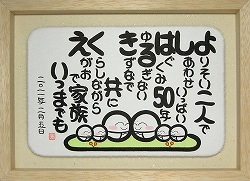 よりそい二人で
しあわせいっぱい
はぐくみ50年
ゆるぎない
きずなで 共に
くらしながら
えがおで家族
いつまでも